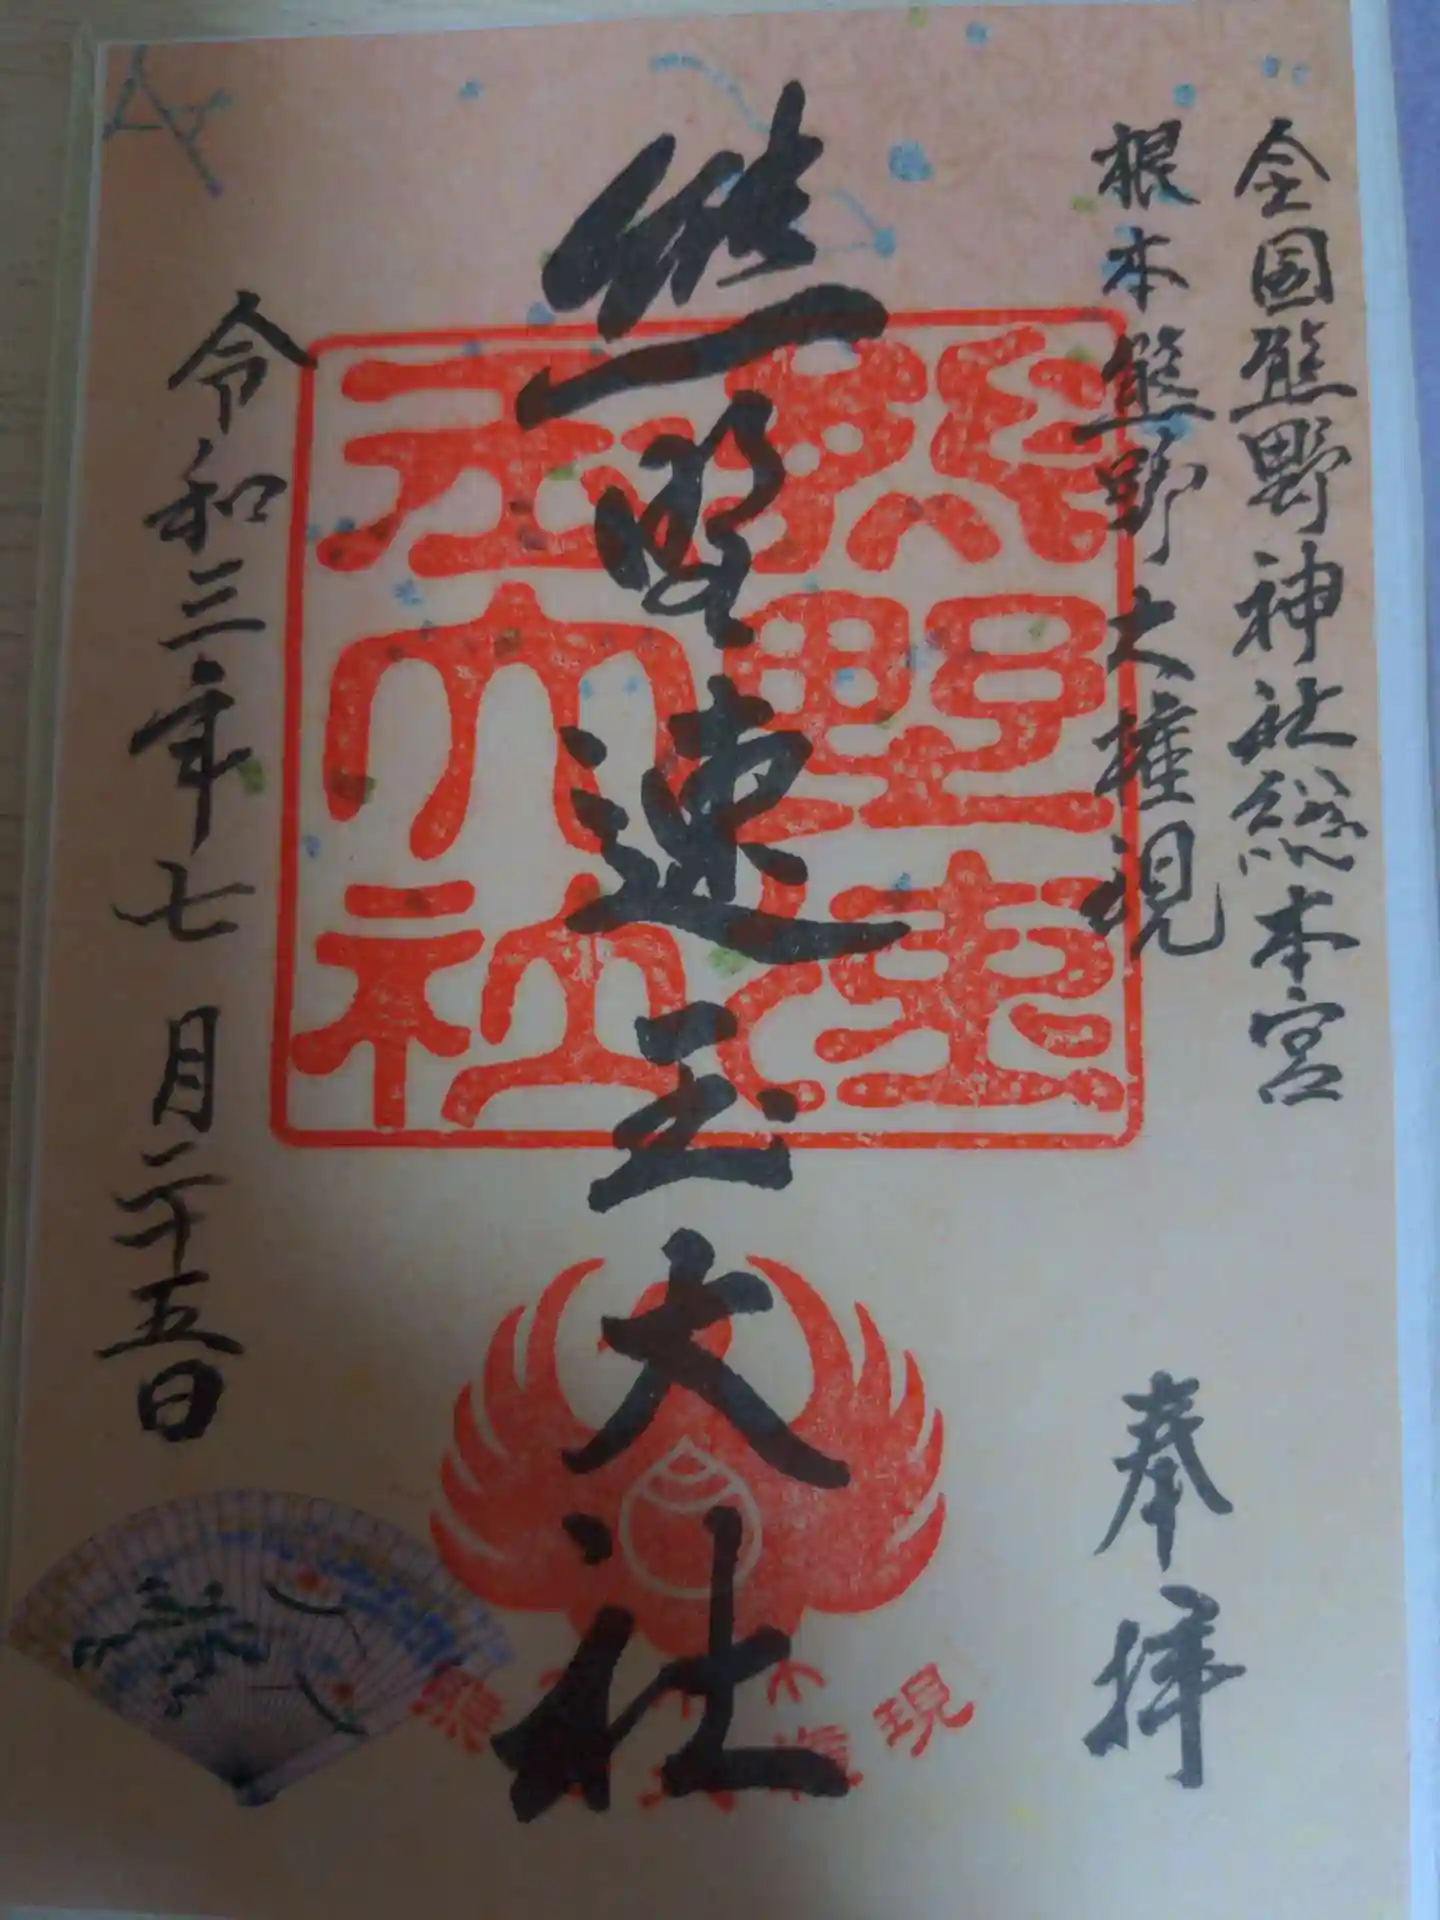 全国熊野神社総本宮
根本熊野大権現
奉拝
熊野速玉大社
熊野速玉大社
熊野大権現
令和三年七月二十五日